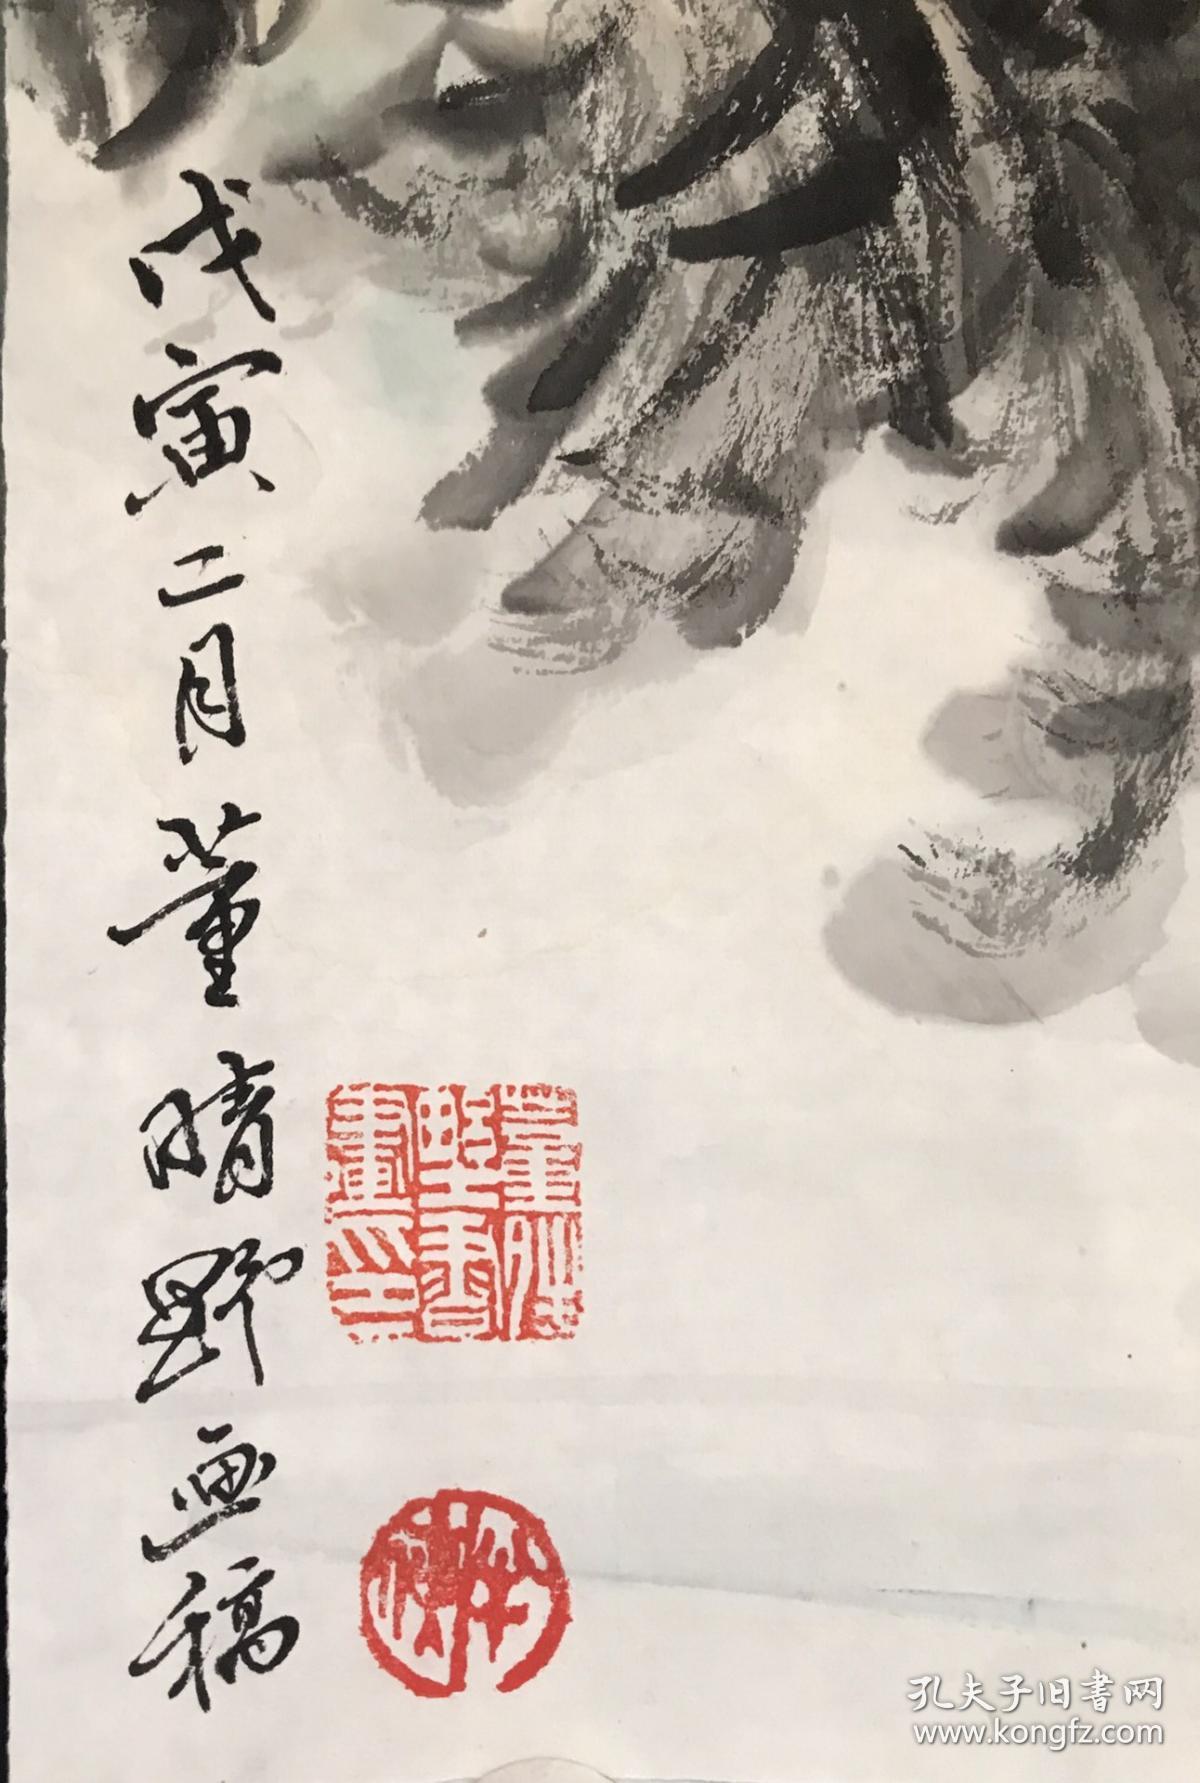 戊寅二月董晴野画稿
孔夫子旧書网
www.kongfz.com